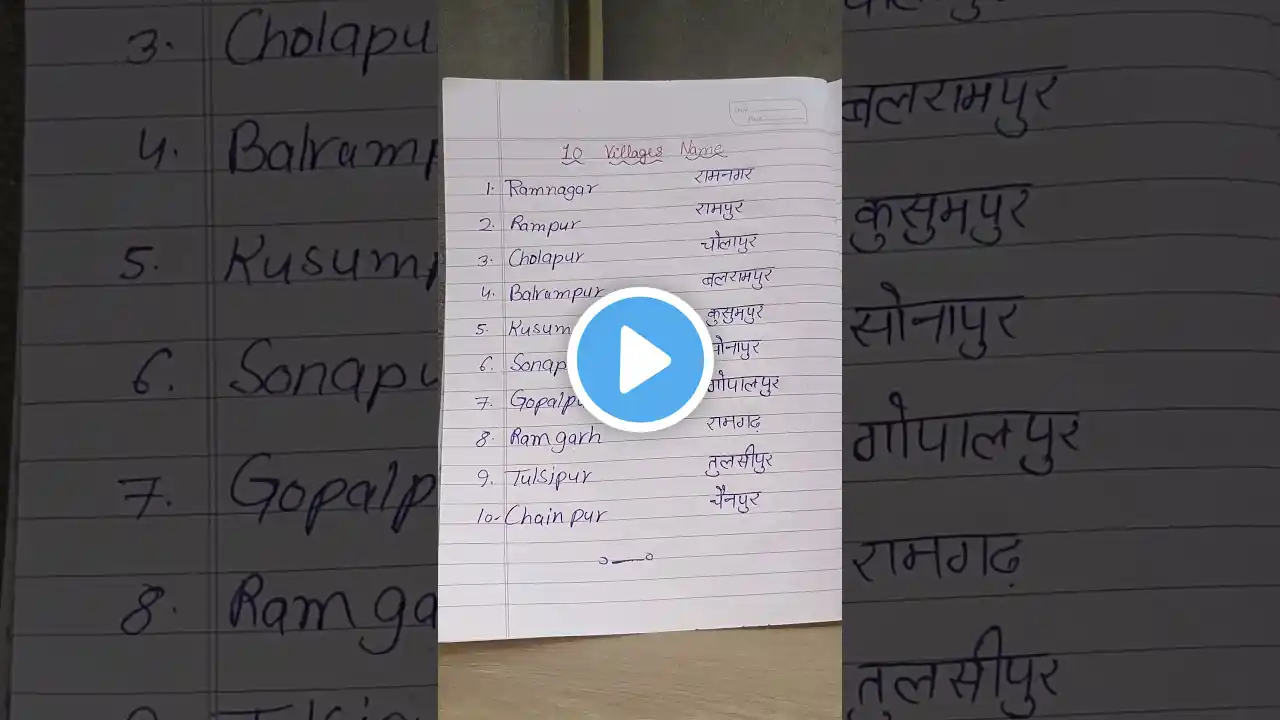 10 Villages Name
1. Ramnagar रामनगर
2. Rampur रामपुर
3. Cholapur चोलापुर
4. Balrampur बलरामपुर
5. Kusum कुसुमपुर
6. Sonap सोनापुर
7. Gopalpu गोपालपुर
8. Ramgarh रामगढ़
9. Tulsipur तुलसीपुर
10. Chainpur चैनपुर
3. Cholapu
4. Balramp बलरामपुर
5. Kusump कुसुमपुर
6. Sonapu सोनापुर
7. Gopalp गोपालपुर
8. Ramga रामगढ़
तुलसीपुर